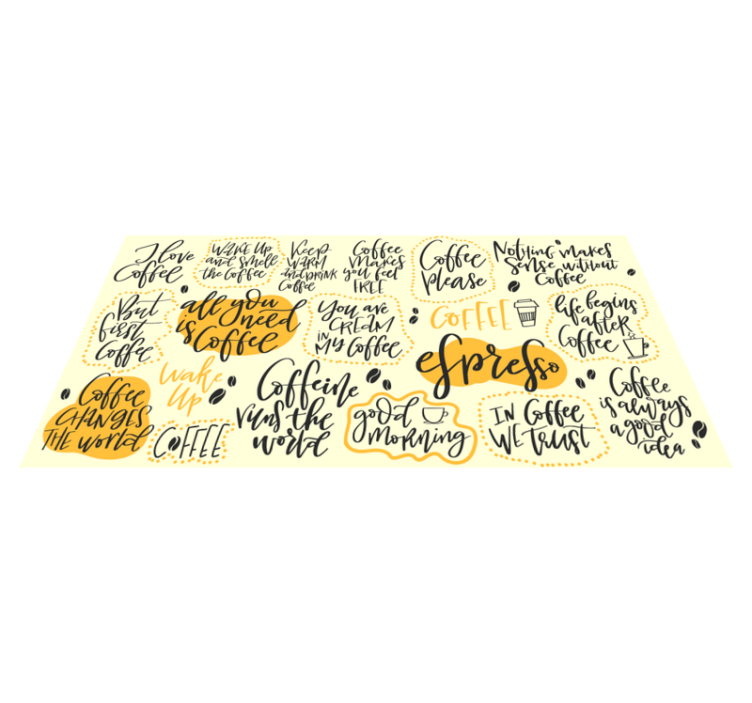 I love
Coffee
Wake Up
and smell
the coffee
Keep
WARM
and DRINK
Coffee
Coffee
makes
you feel
FREE
Coffee
please
Nothing makes
Sense without
Coffee
But
first
Coffee
all you
need
is Coffee
You are
CREAM
in
MY Coffee
COFFEE
life begins
after
Coffee
espresso
Coffee
CHANGES
THE world
wake
Up
COFFEE
Caffeine
runs the
world
good
morning
IN Coffee
WE TRUST
Coffee
is always
a good
idea